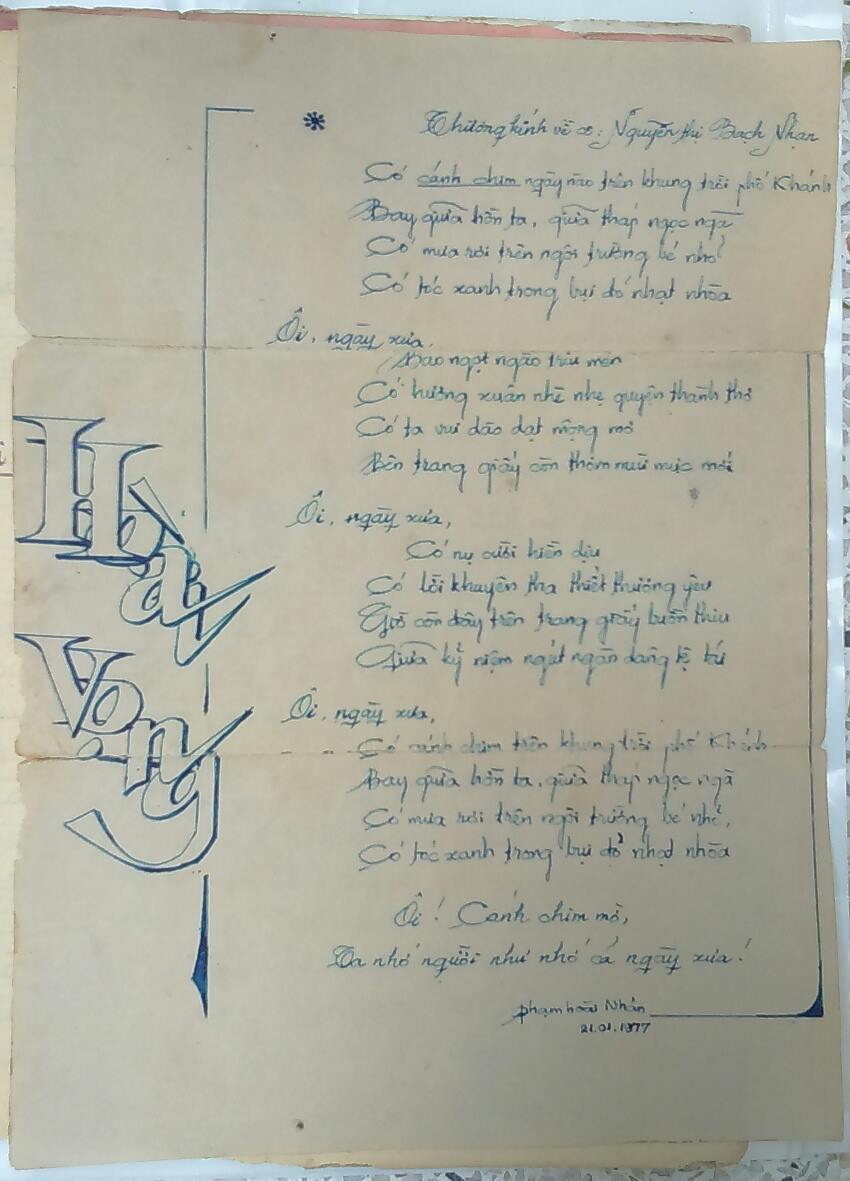 * Thương kính về cô: Nguyễn thị Bạch Nhạn
Có cánh chim ngày nào trên khung trời phố Khánh
Bay giữa hồn ta, giữa tháp ngọc ngà
Có mưa rơi trên ngôi trường bé nhỏ
Có tóc xanh trong bụi đỏ nhạt nhòa
Ôi, ngày xưa,
Bao ngọt ngào trìu mến
Có hương xuân nhè nhẹ quyện thành thơ
Có ta vui dào dạt mộng mơ
Bên trang giấy còn thơm mùi mực mới
Ôi, ngày xưa,
Có nụ cười hiền dịu
Có lời khuyên tha thiết thương yêu
Giờ còn đây trên trang giấy buồn thiu
Giữa kỷ niệm ngút ngàn dâng lệ
Ôi, ngày xưa,
Có cánh chim trên khung trời phố Khánh
Bay giữa hồn ta, giữa tháp ngọc ngà
Có mưa rơi trên ngôi trường bé nhỏ,
Có tóc xanh trong bụi đỏ nhạt nhòa
Ôi! Cánh chim mờ,
Ta nhớ người như nhớ cả ngày xưa!
phạm hoài Nhân
21.01.1977
Hoài
Vọng